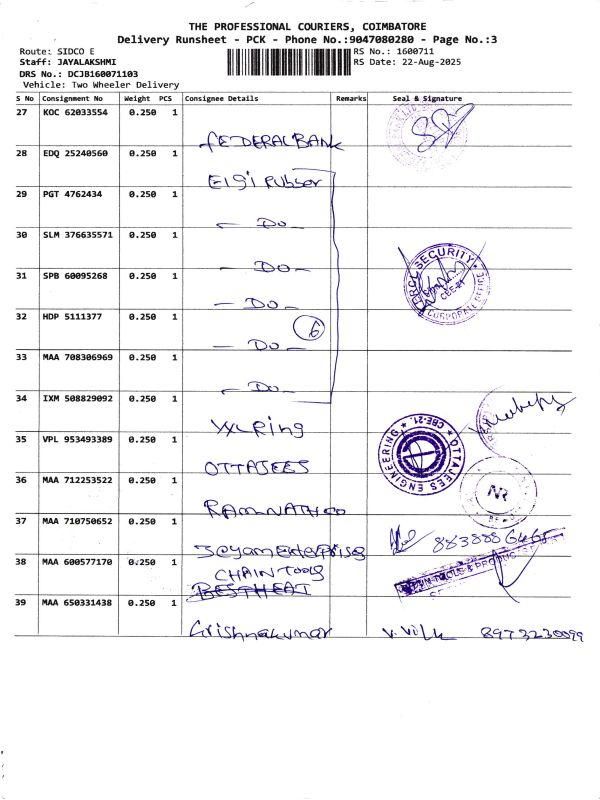 THE PROFESSIONAL COURIERS, COIMBATORE
Delivery Runsheet - PCK - Phone No.:9047080280 - Page No.:3
Route: SIDCO E
RS No.: 1600711
Staff: JAYALAKSHMI
RS Date: 22-Aug-2025
DRS No.: DCJB160071103
Vehicle: Two Wheeler Delivery
S No Consignment No Weight PCS Consignee Details Remarks Seal & Signature
27 KOC 62033554 0.250 1
FEDERAL BANK
28 EDQ 25240560 0.250 1
Elgi Rubber
29 PGT 4762434 0.250 1
— Do —
30 SLM 376635571 0.250 1
— Do —
FORCE SECURITY
CBE-21
CORPORATE OFFICE
31 SPB 60095268 0.250 1
— Do —
32 HDP 5111377 0.250 1
6
— Do —
33 MAA 708306969 0.250 1
— Do —
34 IXM 508829092 0.250 1
Ring
35 VPL 953493389 0.250 1
OTTAJEES
OTTAJEES ENGINEERING
CBE-21.
36 MAA 712253522 0.250 1
RAMNATH CO
NR
37 MAA 710750652 0.250 1
Jeyam Enterprises
38 MAA 600577170 0.250 1
CHAIN TOOLS
BESTHEAT
TOOLS & PRODUC
39 MAA 650331438 0.250 1
Grishnakumar
8973230099